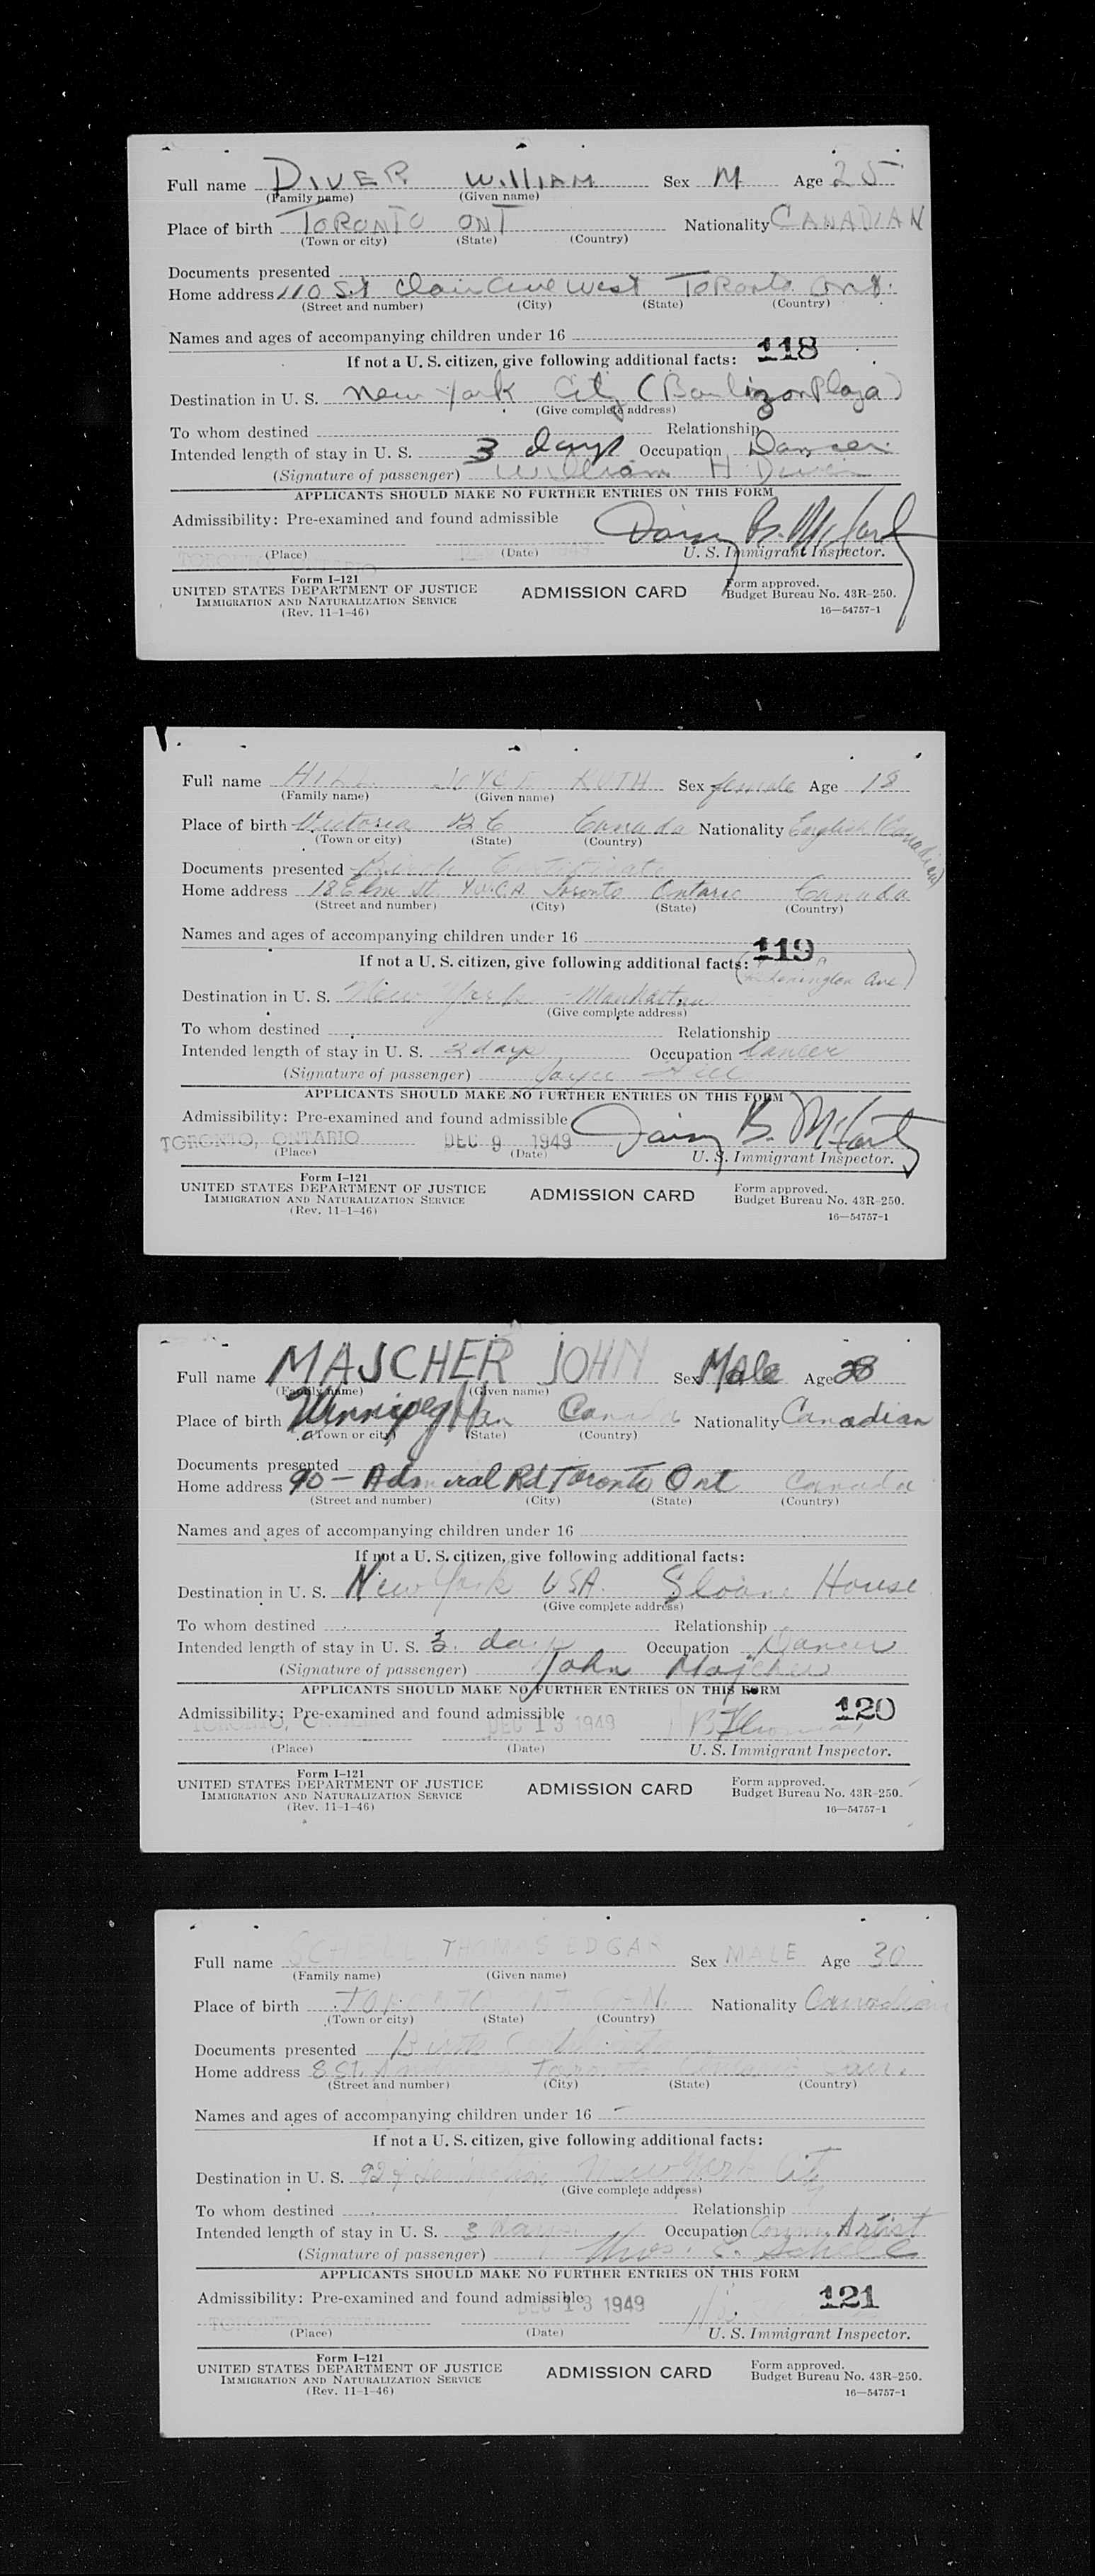 Full name DIVER WILLIAM Sex M Age 25
(Family name) (Given name)
Place of birth TORONTO ONT Nationality CANADIAN
(Town or city) (State) (Country)
Documents presented
Home address 110 St Clair Ave West Toronto Ont.
(Street and number) (City) (State) (Country)
Names and ages of accompanying children under 16
If not a U. S. citizen, give following additional facts: 118
Destination in U. S. New York City (Barbizon Plaza)
(Give complete address)
To whom destined Relationship
Intended length of stay in U. S. 3 days Occupation Dancer
(Signature of passenger) William H Diver
APPLICANTS SHOULD MAKE NO FURTHER ENTRIES ON THIS FORM
Admissibility: Pre-examined and found admissible
(Place) (Date) U. S. Immigrant Inspector.
Form I-121
UNITED STATES DEPARTMENT OF JUSTICE
IMMIGRATION AND NATURALIZATION SERVICE
(Rev. 11-1-46)
ADMISSION CARD
Form approved.
Budget Bureau No. 43R-250.
16—54757-1
Full name HILL JOYCE RUTH Sex female Age 18
(Family name) (Given name)
Place of birth Victoria BC Canada Nationality English (Canadian)
(Town or city) (State) (Country)
Documents presented Birth Certificate
Home address 18 Elm St Y.W.C.A. Toronto Ontario Canada
(Street and number) (City) (State) (Country)
Names and ages of accompanying children under 16
If not a U. S. citizen, give following additional facts: 119
Lexington Ave)
Destination in U. S. New York - Manhattan
(Give complete address)
To whom destined Relationship
Intended length of stay in U. S. 2 days Occupation dancer
(Signature of passenger) Joyce Hill
APPLICANTS SHOULD MAKE NO FURTHER ENTRIES ON THIS FORM
Admissibility: Pre-examined and found admissible
TORONTO, ONTARIO DEC 9 1949
(Place) (Date) U. S. Immigrant Inspector.
Form I-121
UNITED STATES DEPARTMENT OF JUSTICE
IMMIGRATION AND NATURALIZATION SERVICE
(Rev. 11-1-46)
ADMISSION CARD
Form approved.
Budget Bureau No. 43R-250.
16—54757-1
Full name MAJCHER JOHN Sex Male Age 28
(Family name) (Given name)
Place of birth Winnipeg Man Canada Nationality Canadian
(Town or city) (State) (Country)
Documents presented
Home address 90 - Admiral Rd Toronto Ont Canada
(Street and number) (City) (State) (Country)
Names and ages of accompanying children under 16
If not a U. S. citizen, give following additional facts:
Destination in U. S. New York USA. Sloane House
(Give complete address)
To whom destined Relationship
Intended length of stay in U. S. 3. days Occupation Dancer
(Signature of passenger) John Majcher
APPLICANTS SHOULD MAKE NO FURTHER ENTRIES ON THIS FORM
Admissibility: Pre-examined and found admissible 120
TORONTO, ONTARIO DEC 13 1949
(Place) (Date) U. S. Immigrant Inspector.
Form I-121
UNITED STATES DEPARTMENT OF JUSTICE
IMMIGRATION AND NATURALIZATION SERVICE
(Rev. 11-1-46)
ADMISSION CARD
Form approved.
Budget Bureau No. 43R-250.
16—54757-1
Full name SCHELL THOMAS EDGAR Sex MALE Age 30
(Family name) (Given name)
Place of birth TORONTO ONT CAN. Nationality Canadian
(Town or city) (State) (Country)
Documents presented Birth Certificate
Home address 8 St. Toronto Ontario Can.
(Street and number) (City) (State) (Country)
Names and ages of accompanying children under 16 -
If not a U. S. citizen, give following additional facts:
Destination in U. S. Lexington New York City
(Give complete address)
To whom destined Relationship
Intended length of stay in U. S. 3 days Occupation Comm. Artist
(Signature of passenger) Thos. E. Schell
APPLICANTS SHOULD MAKE NO FURTHER ENTRIES ON THIS FORM
Admissibility: Pre-examined and found admissible 121
TORONTO, ONTARIO DEC 13 1949
(Place) (Date) U. S. Immigrant Inspector.
Form I-121
UNITED STATES DEPARTMENT OF JUSTICE
IMMIGRATION AND NATURALIZATION SERVICE
(Rev. 11-1-46)
ADMISSION CARD
Form approved.
Budget Bureau No. 43R-250.
16—54757-1